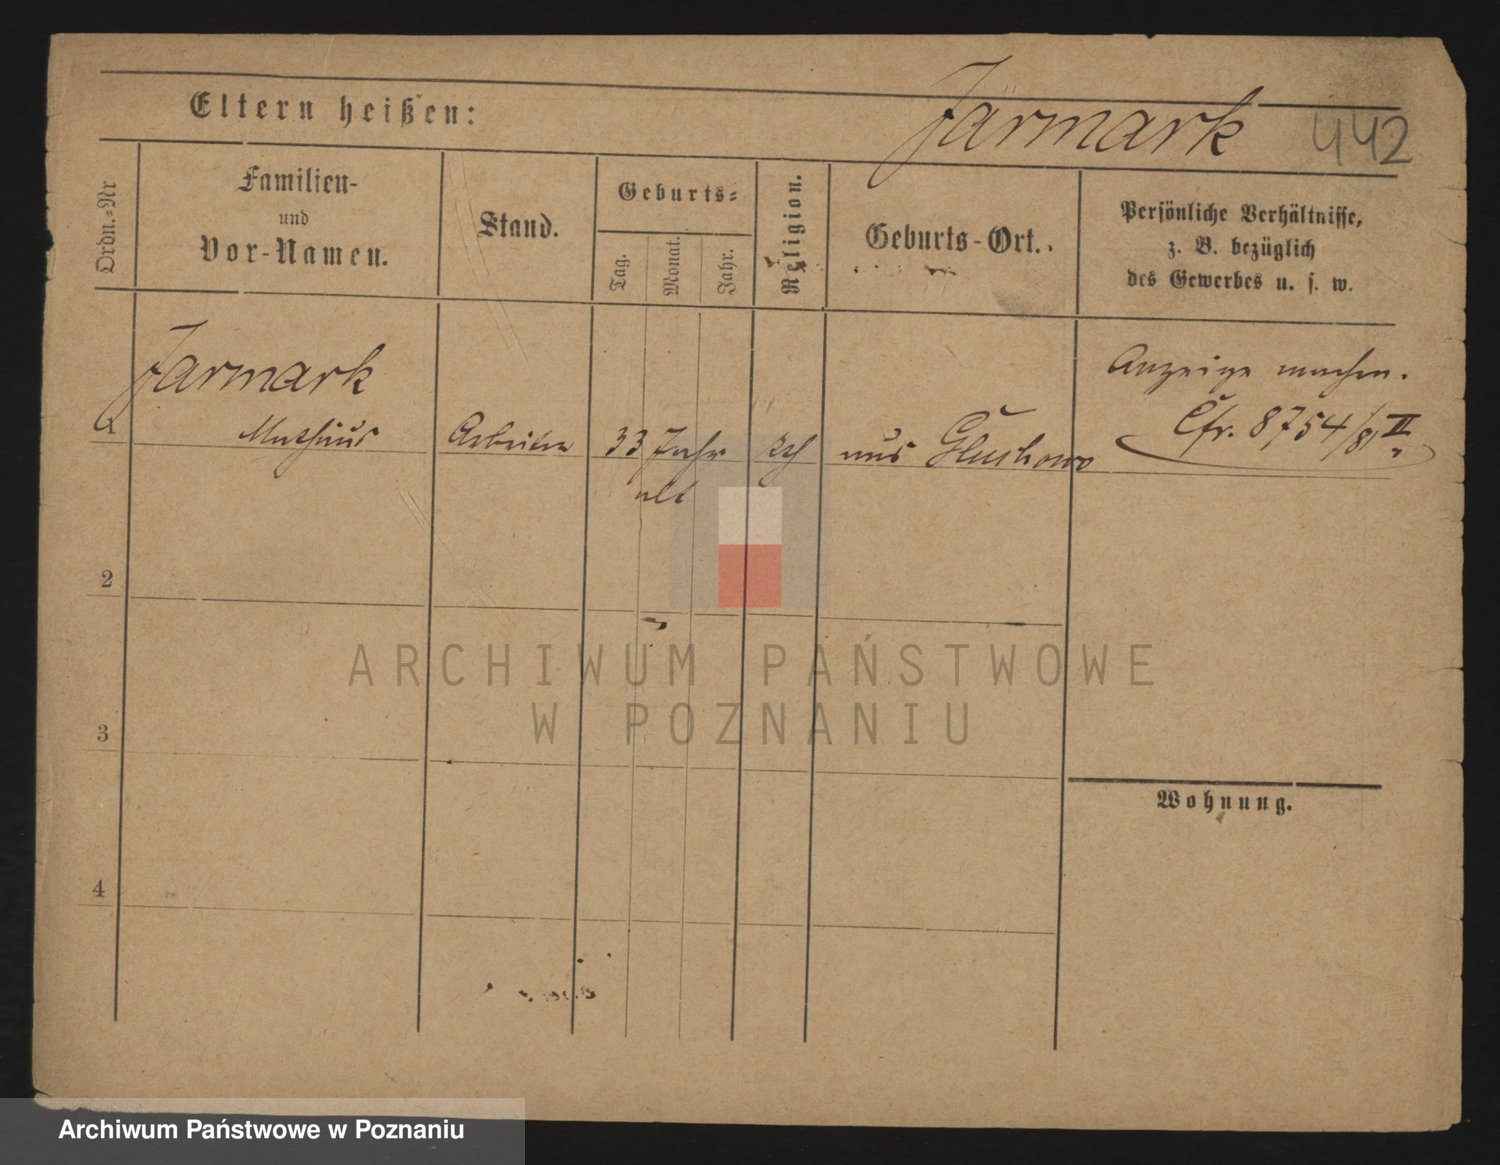 Eltern heißen:
Jarmark 442
Ordn.=Nr
Familien-
und
Vor-Namen.
Stand.
Geburts=
Tag.
Monat.
Jahr.
Religion.
Geburts-Ort.
Persönliche Verhältnisse,
z. B. bezüglich
des Gewerbes u. s. w.
Jarmark
Anzeige machen.
Mathäus Arbeiter 33 Jahr kth aus Gluchowo Cfr. 8754/81 II
alt
2
3
4
Wohnung.
ARCHIWUM PAŃSTWOWE
W POZNANIU
Archiwum Państwowe w Poznaniu